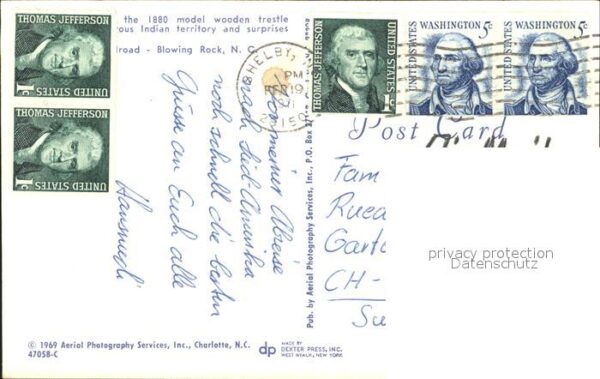 the 1880 model wooden trestle
rous Indian territory and surprises
lroad - Blowing Rock, N. C.
THOMAS JEFFERSON
UNITED STATES
1c
THOMAS JEFFERSON
UNITED STATES
1c
SHELBY,
PM
FEB 19
1971
28150
THOMAS JEFFERSON
UNITED STATES
1c
WASHINGTON 5c
UNITED STATES
WASHINGTON 5c
UNITED STATES
Post Card
Vor meiner Abreise
nach Süd-Amerika
noch schnell die besten
Grüsse an Euch alle
Hansruedi
Pub. by Aerial Photography Services, Inc., P.O. Box
Fam
Ruea
Garte
CH -
Su
privacy protection
Datenschutz
© 1969 Aerial Photography Services, Inc., Charlotte, N.C.
47058-C
dp
MADE BY
DEXTER PRESS, INC.
WEST NYACK, NEW YORK